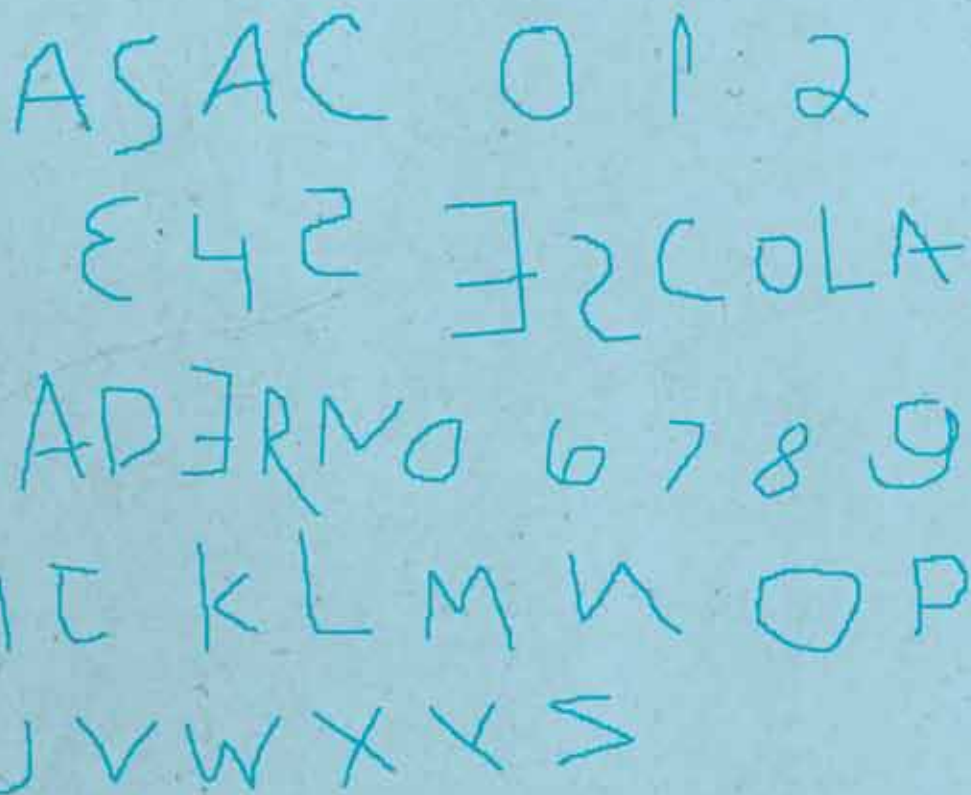 ASAC 0 1 2
3 4 5 ESCOLA
ADERNO 6 7 8 9
I J K L M N O P
U V W X Y Z